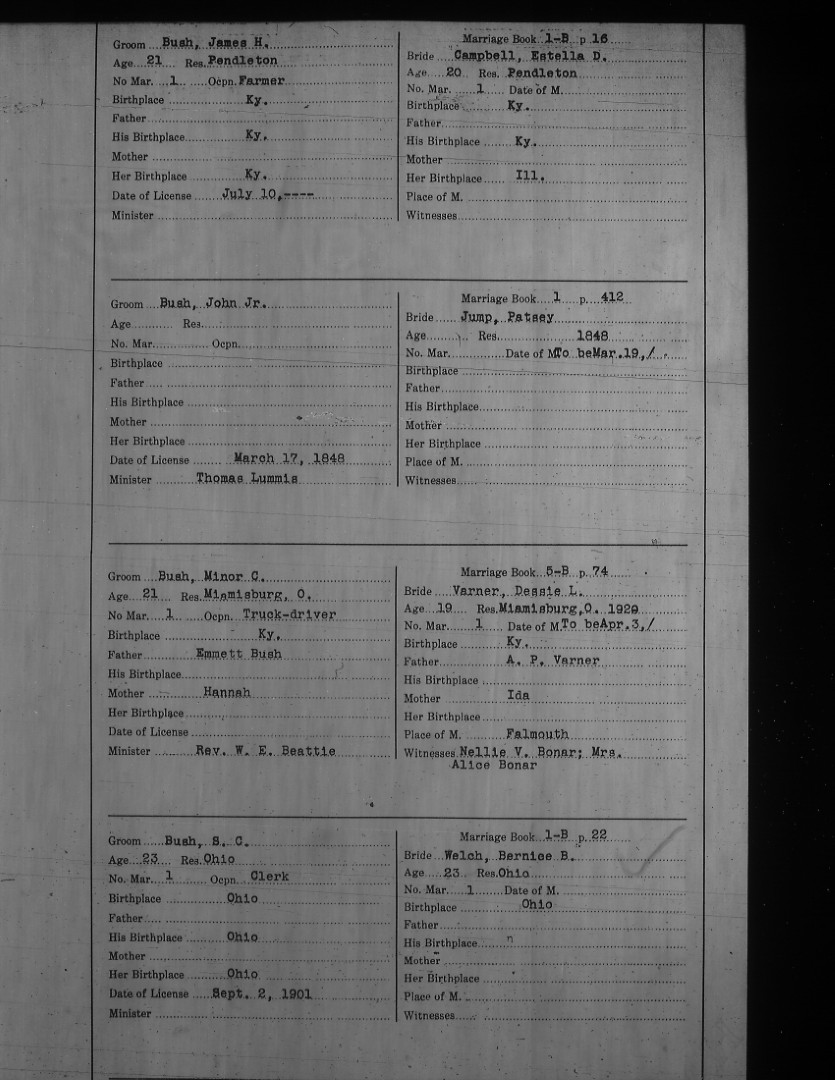 Groom Bush, James H.
Age 21 Res. Pendleton
No Mar. 1 Ocpn. Farmer
Birthplace Ky.
Father
His Birthplace Ky.
Mother
Her Birthplace Ky.
Date of License July 10,----
Minister
Marriage Book 1-B p 16
Bride Campbell, Estella D.
Age 20 Res. Pendleton
No. Mar. 1 Date of M.
Birthplace Ky.
Father
His Birthplace Ky.
Mother
Her Birthplace Ill.
Place of M.
Witnesses
Groom Bush, John Jr.
Age Res.
No. Mar. Ocpn.
Birthplace
Father
His Birthplace
Mother
Her Birthplace
Date of License March 17, 1848
Minister Thomas Lummis
Marriage Book 1 p. 412
Bride Jump, Patsey
Age Res. 1848
No. Mar. Date of M. To be Mar. 19,/
Birthplace
Father
His Birthplace
Mother
Her Birthplace
Place of M.
Witnesses
Groom Bush, Minor C.
Age 21 Res. Miamisburg, O.
No Mar. 1 Ocpn. Truck-driver
Birthplace Ky.
Father Emmett Bush
His Birthplace
Mother Hannah
Her Birthplace
Date of License
Minister Rev. W. E. Beattie
Marriage Book 5-B p. 74
Bride Varner, Dessie L.
Age 19 Res. Miamisburg, O. 1929
No. Mar. 1 Date of M. To be Apr. 3,/
Birthplace Ky.
Father A. P. Varner
His Birthplace
Mother Ida
Her Birthplace
Place of M. Falmouth
Witnesses Nellie V. Bonar; Mrs.
Alice Bonar
Groom Bush, S. C.
Age 23 Res. Ohio
No. Mar. 1 Ocpn. Clerk
Birthplace Ohio
Father
His Birthplace Ohio
Mother
Her Birthplace Ohio
Date of License Sept. 2, 1901
Minister
Marriage Book 1-B p. 22
Bride Welch, Bernice B.
Age 23 Res. Ohio
No. Mar. 1 Date of M.
Birthplace Ohio
Father
His Birthplace "
Mother
Her Birthplace "
Place of M.
Witnesses